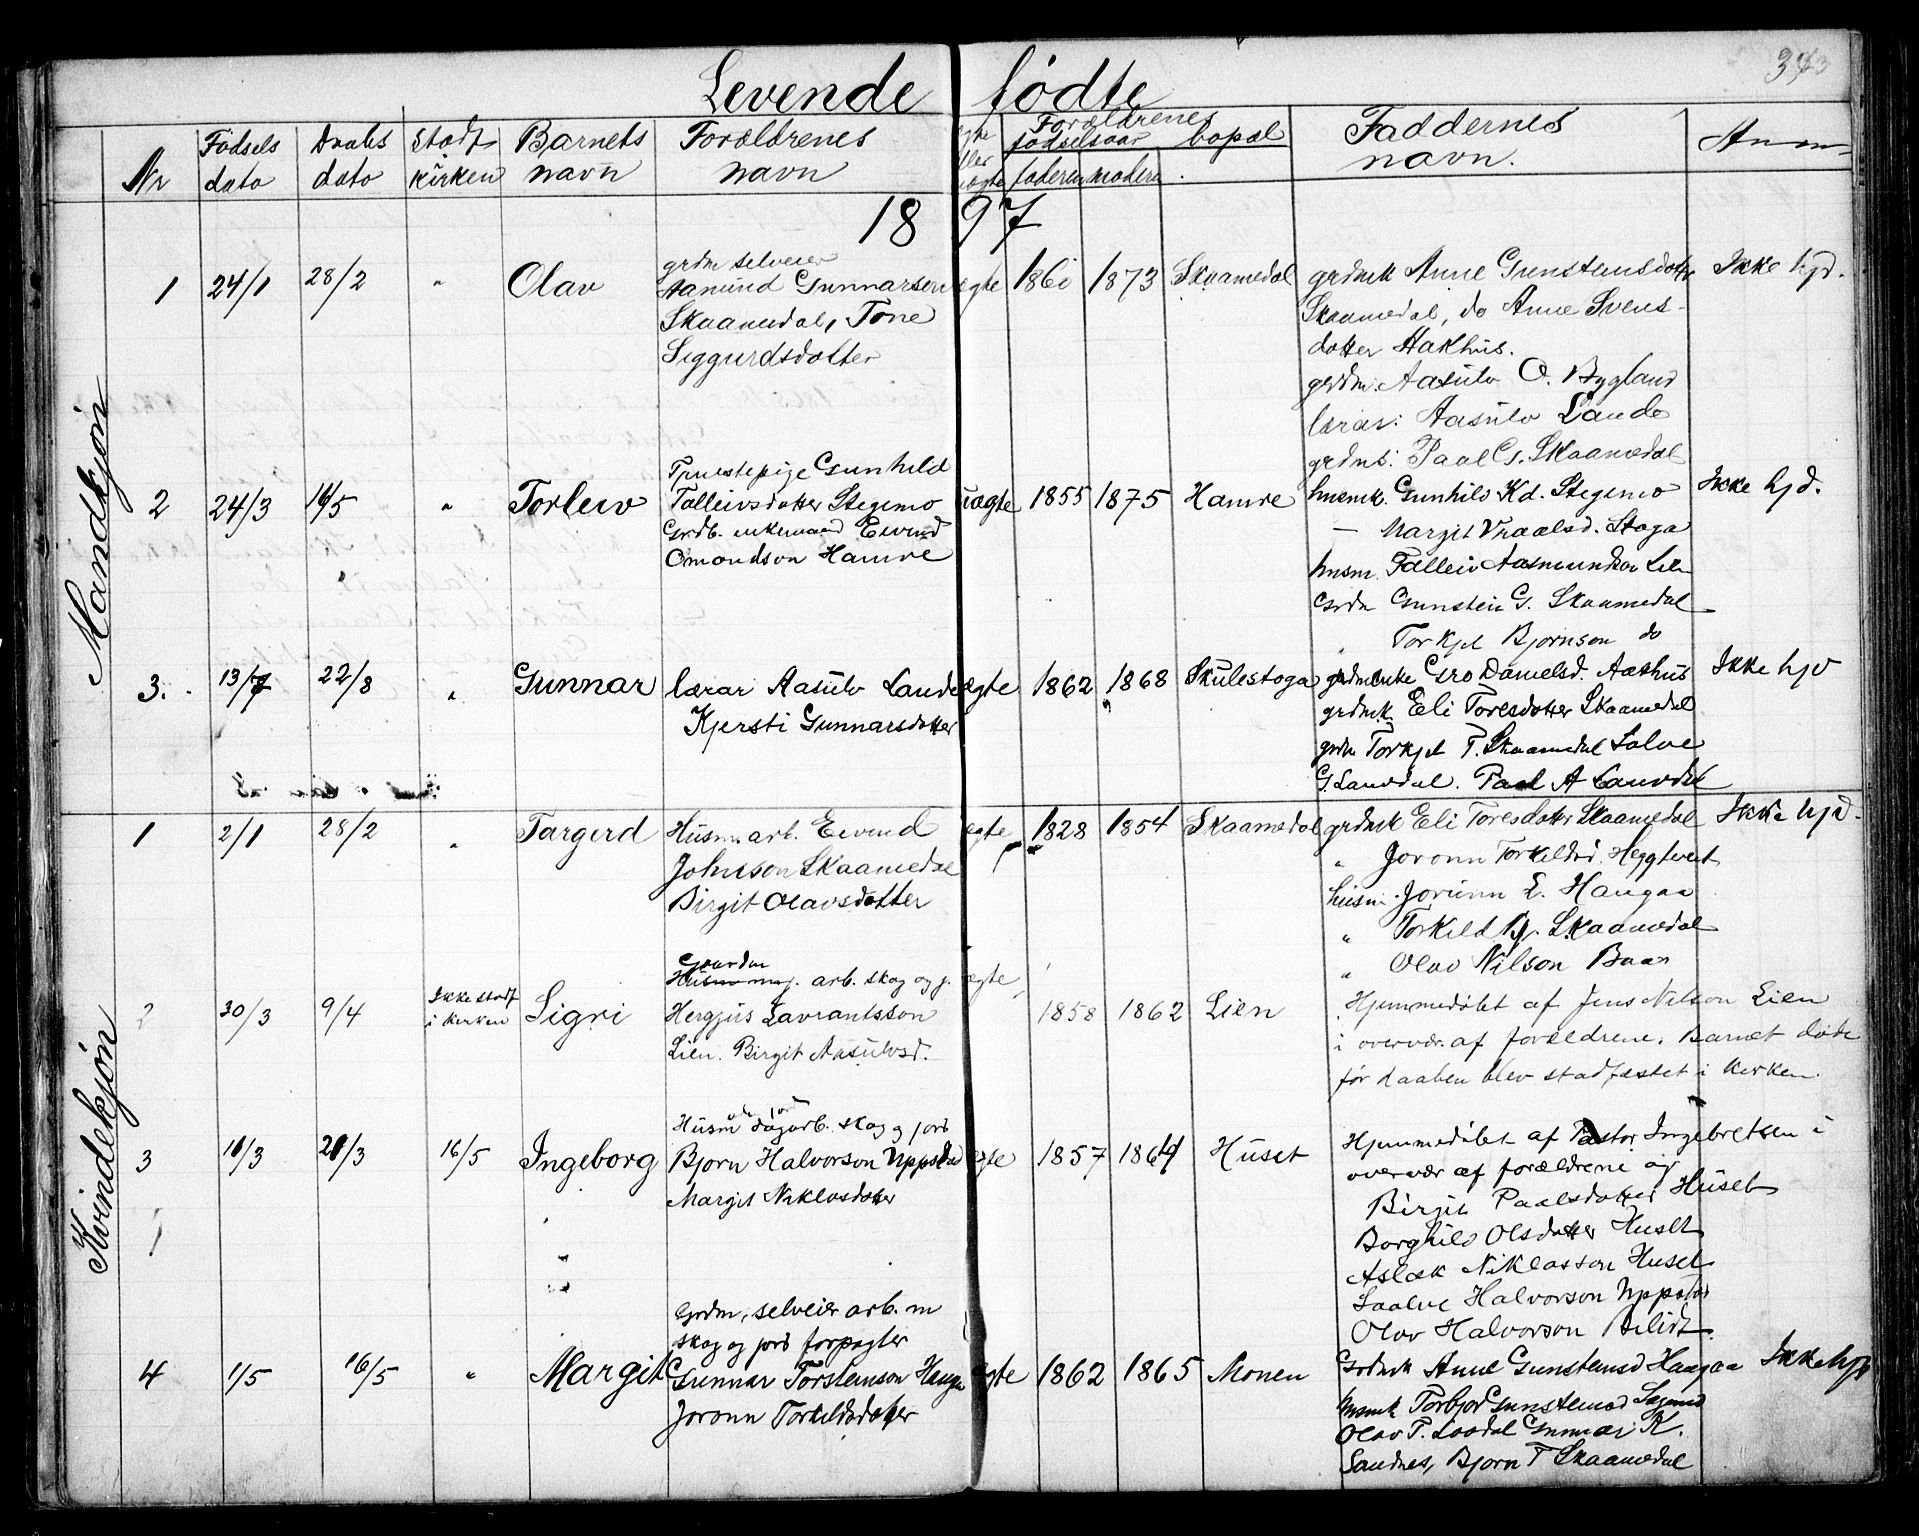 Levende fødte
Nr
Fødsels dato
Daabs dato
Stadf kirken
Barnets navn
Forældrenes navn
Forældrenes fødselsaar
faderen
modern
bopæl
Faddernes navn.
Anm
1897
Mandkjøn
1 24/1 28/2 " Olav
grdm selveier
Aanund Gunnarsen
Skaamedal, Tone
Siggurdsdotter
ægte 1860 1873 Skaamedal
grdmk Anne Gunsteinsdotter
Skaamedal, do Anne Svens-
dotter Hakhus.
grdm. Aasulv O. Bygland
lærar: Aasulv Lande
grdms: Paal G. Skaamedal
Ikke hjd.
2 24/3 16/5 " Torleiv
Tjenestepige Gunhild
Talleivsdotter Stegemo
Grdb. enkemand Eivind
Omondson Hamre
uægte 1855 1875 Hamre
husmk. Gunhild Kd. Stegemo
— Margit Vraalsd. Stoga
husm. Talleiv Aasmundson Lien
Grdm Gunstein G. Skaamedal
" Torkjel Bjornson do
Ikke hjd.
3. 13/7 22/8 " Gunnar
lærar Aasulv Lande
Kjersti Gunnarsdotter
ægte 1862 1868 Skulestoga
grdmenke Gro Danielsd. Aakhus
grdmk Eli Toresdotter Skaamedal
grdm Torkjel T. Skaamedal Salve
G. Lauvdal. Paal A Lauvdal
Ikke hjd
Kvindekjøn
1 2/1 28/2 " Targerd
Husm. arb. Eivind
Johnson Skaamedal
Birgit Olavsdotter
ægte 1828 1854 Skaamedal
grdmk Eli Toresdotter Skaamedal
" Joronn Torkildsd. Heggtveit
husm. Jorunn E. Haugaa
" Torkild Bj. Skaamedal
" Olav Nilson Baas
Ikke hjd.
2 30/3 9/4 Ikke stadf i kirken Sigri
Gaardm
arb. skog og j.
Hergjus Lavrantsson
Lien. Birgit Aasulvsd.
ægte 1858 1862 Lien
Hjemmedøbt af Jens Nilson Lien
i overvær. af forældrene. Barnet døde
før daaben blev stadfæstet i kirken.
3 11/3 21/3 16/5 Ingeborg
Husm uden jord
dagarb. skog og jord
Bjorn Halvorson Uppstad
Margit Niklasdotter
ægte 1857 1864 Huset
Hjemmedøbt af Pastor Ingebretsen i
overvær af forældrene og
Birgit Paalsdotter Huset
Borghild Olsdotter Huset
Aslak Niklasson Huset
Saalve Halvorson Uppstad
Olav Halvorson
4 1/5 16/5 " Margit
Grdm, selveier arb. m
skog og jord forpagter
Gunnar Torsteinson Haugen
Joronn Torkildsdotter
ægte 1862 1865 Monen
Grdmk Anne Gunsteinsd Haugaa
husmk Torbjor Gunsteinsd
Olav T. Loodal Gunnar K.
Sandnes, Bjorn T Skaamedal
Ikke hjd